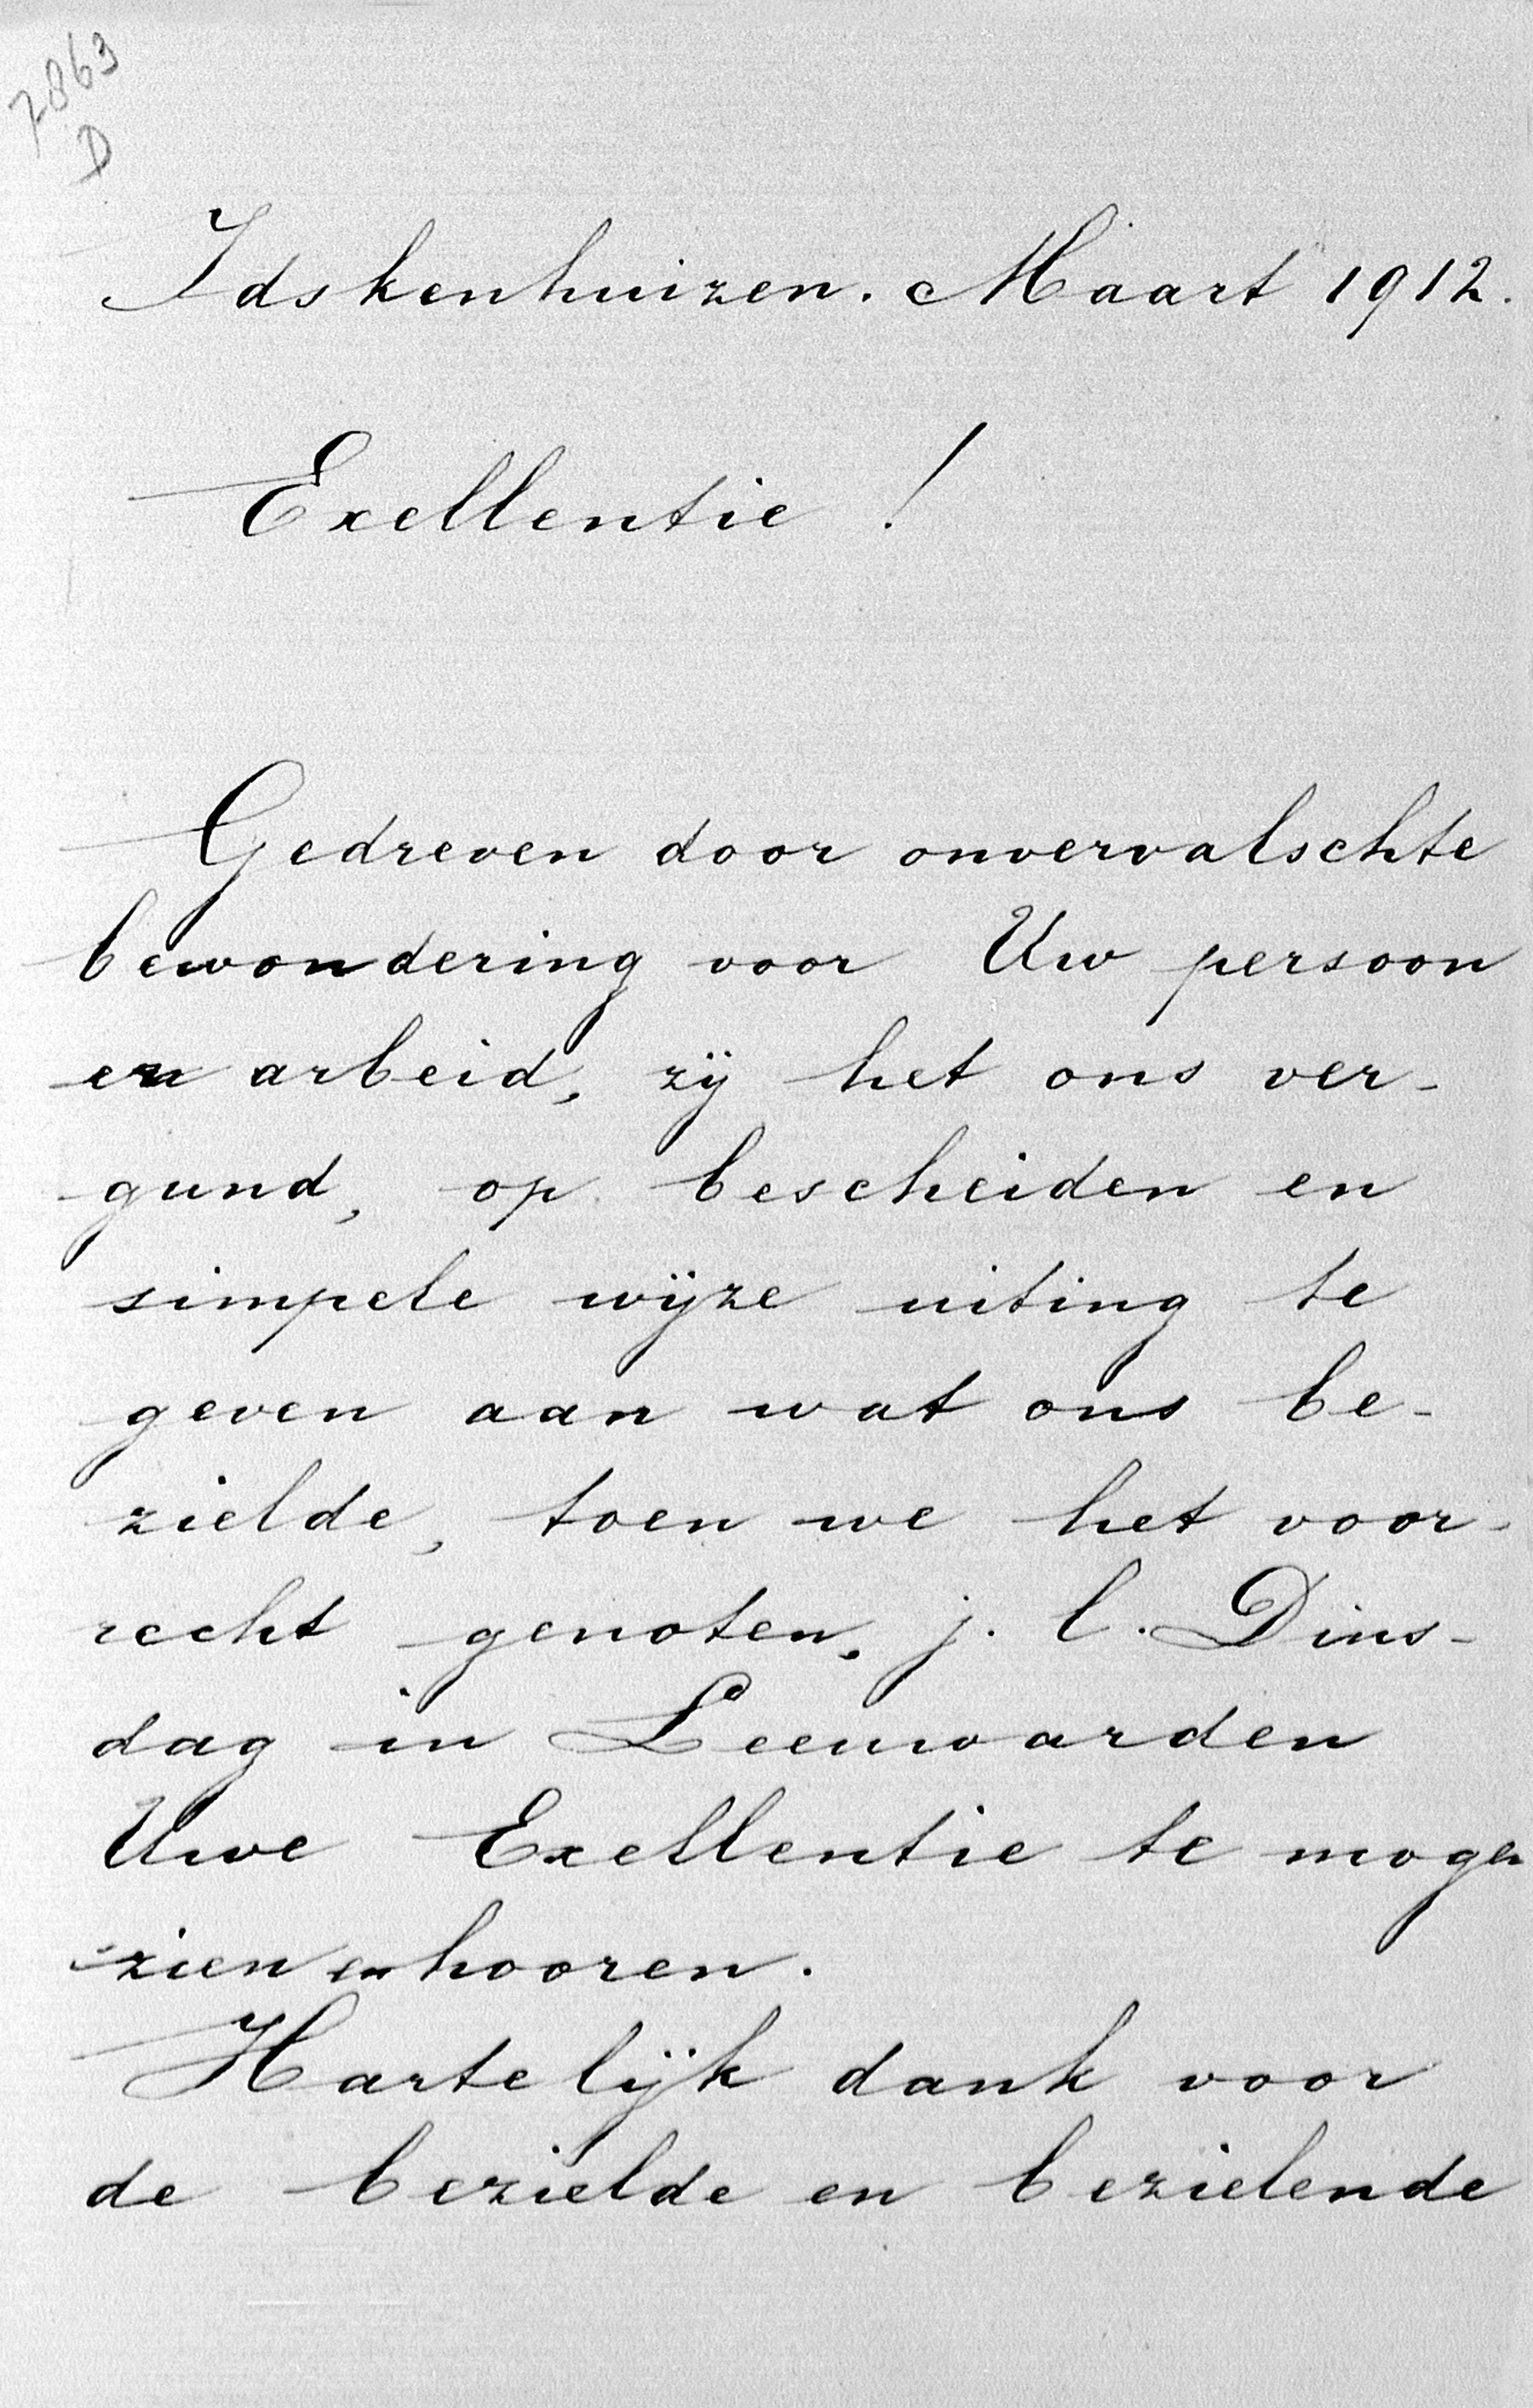 7863
D
Idskenhuizen. Maart 1912.
Exellentie !
Gedreven door onvervalschte
bewondering voor Uw persoon
en arbeid, zij het ons ver-
gund, op bescheiden en
simpele wijze uiting te
geven aan wat ons be-
zielde, toen we het voor-
recht genoten, j. l. Dins-
dag in Leeuwarden
Uwe Exellentie te mogen
zien en hooren.
Hartelijk dank voor
de bezielde en bezielende